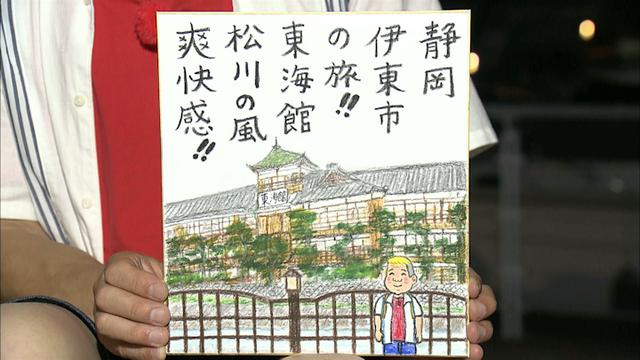 静岡
伊東市
の旅!!
東海館
松川の風
爽快感!!